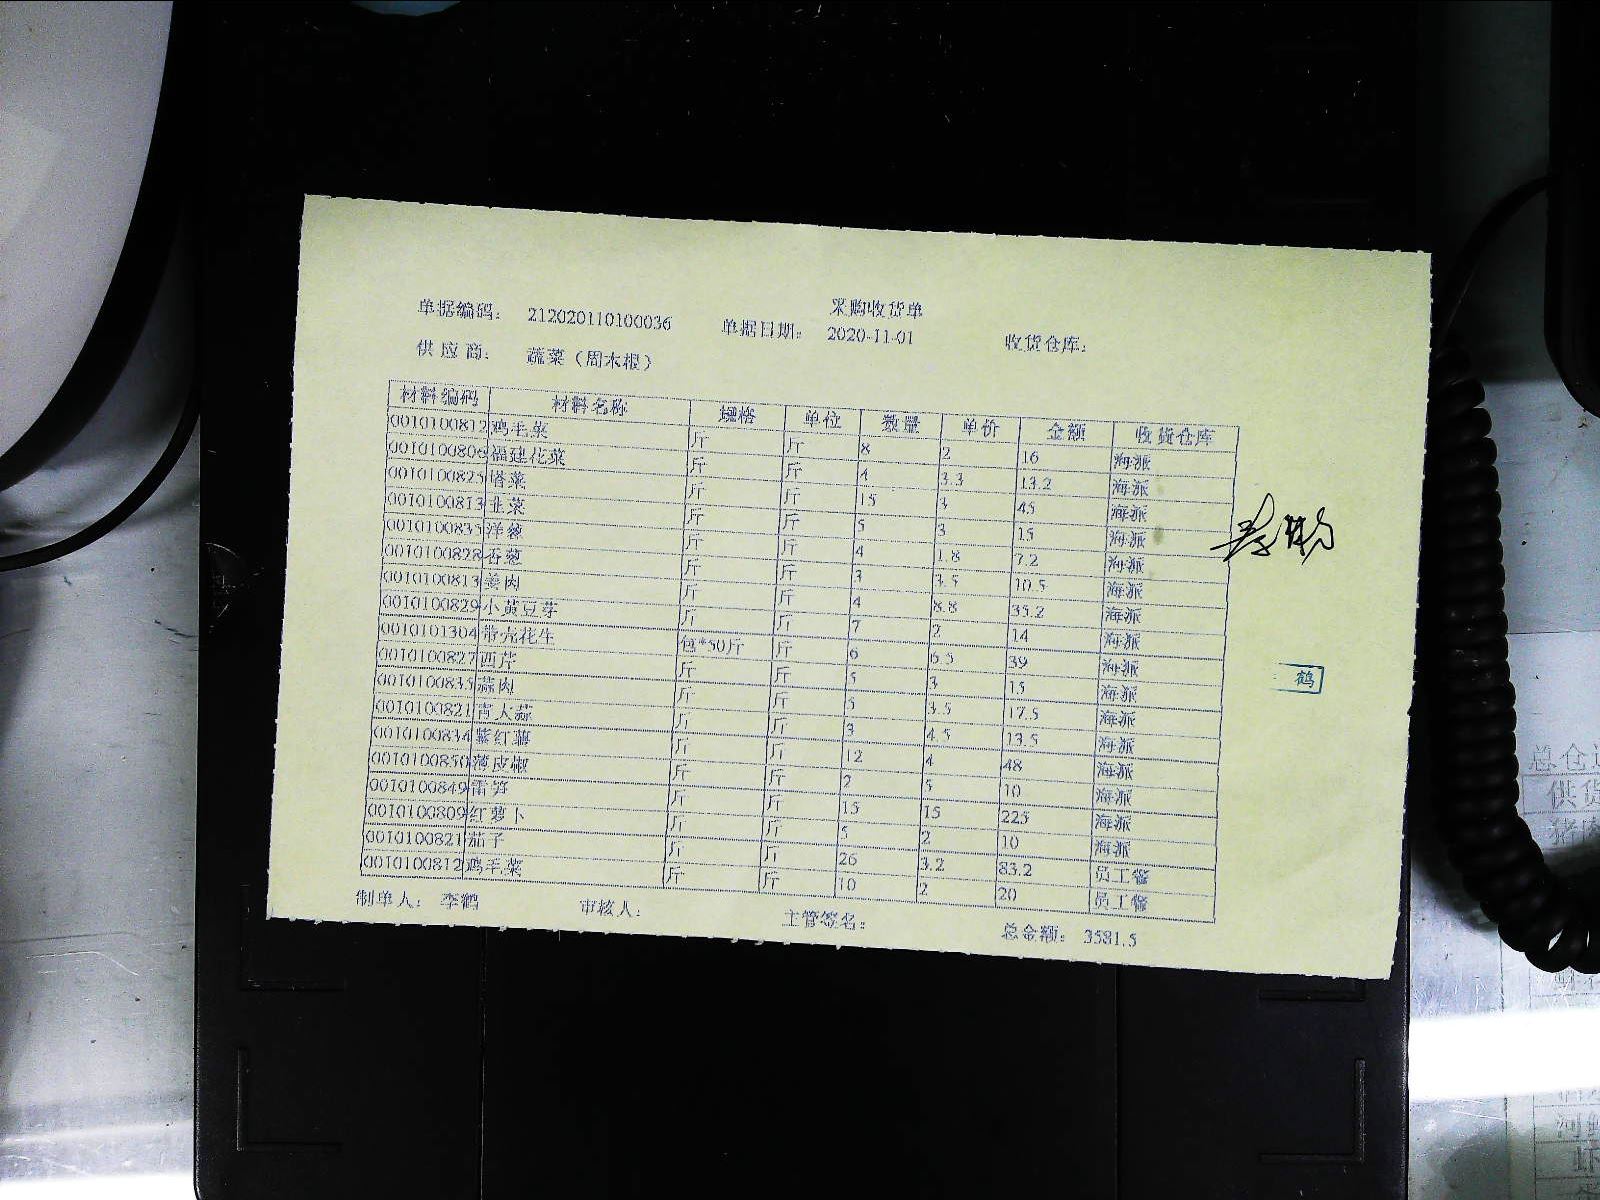 采购收货单
单据编码： 212020110100036 单据日期： 2020-11-01 收货仓库：
供 应 商： 蔬菜（周木根）
材料编码 材料名称 规格 单位 数量 单价 金额 收货仓库
0010100812 鸡毛菜 斤 斤 8 2 16 海派
0010100806 福建花菜 斤 斤 4 3.3 13.2 海派
0010100825 塔菜 斤 斤 15 3 45 海派
0010100813 韭菜 斤 斤 5 3 15 海派
0010100835 洋葱 斤 斤 4 1.8 7.2 海派
0010100828 香葱 斤 斤 3 3.5 10.5 海派
0010100813 姜肉 斤 斤 4 8.8 35.2 海派
0010100829 小黄豆芽 斤 斤 7 2 14 海派
0010101304 带壳花生 包*50斤 斤 6 6.5 39 海派
0010100827 西芹 斤 斤 5 3 15 海派
0010100835 蒜肉 斤 斤 5 3.5 17.5 海派
0010100821 青大蒜 斤 斤 3 4.5 13.5 海派
0010100834 紫红薯 斤 斤 12 4 48 海派
0010100850 薄皮椒 斤 斤 2 5 10 海派
0010100849 雷笋 斤 斤 15 15 225 海派
0010100809 红萝卜 斤 斤 5 2 10 海派
0010100821 茄子 斤 斤 26 3.2 83.2 员工餐
0010100812 鸡毛菜 斤 斤 10 2 20 员工餐
制单人： 李鹤 审核人： 主管签名： 总金额： 3581.5
鹤
总仓
供货